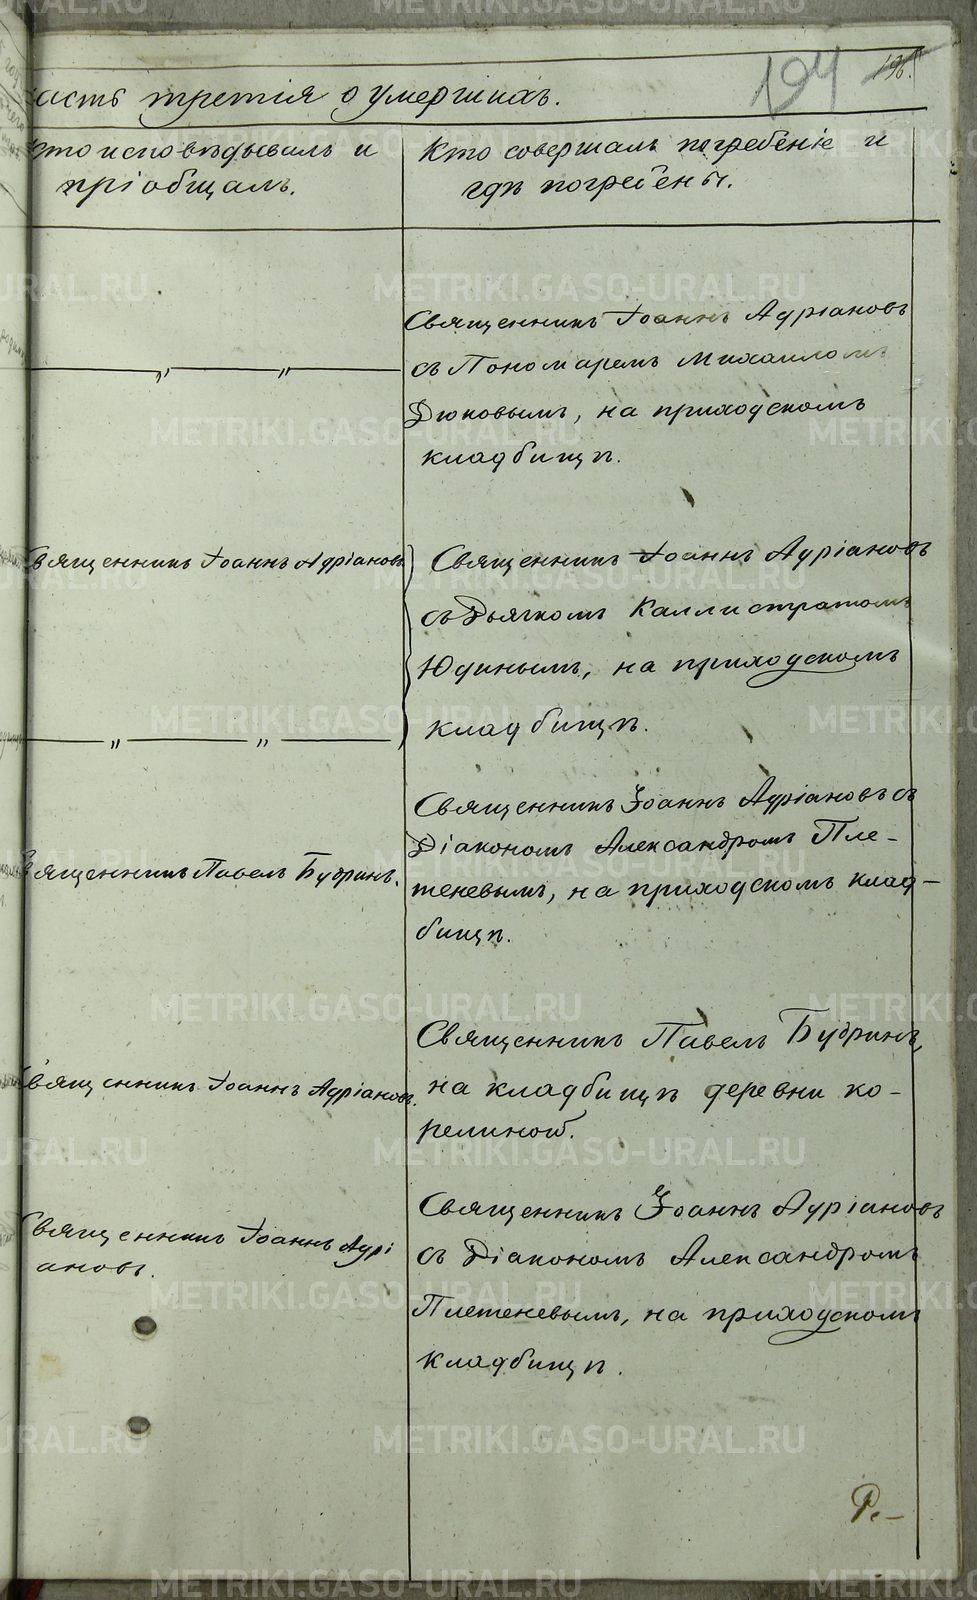 194 196.
асть третія о умершихъ.
Кто исповѣдывалъ и
пріобщалъ.
Кто совершалъ погребеніе и
гдѣ погребены.
Священникъ Іоаннъ Адріановъ
съ Пономаремъ Михаиломъ
Дюковымъ, на приходскомъ
кладбищѣ.
— „ — „ —
Священникъ Іоаннъ Адріановъ
Священникъ Іоаннъ Адріановъ
съ Дьячкомъ Каллистратомъ
Юдинымъ, на приходскомъ
кладбищѣ.
— „ — „ —
Священникъ Павелъ Будринъ.
Священникъ Іоаннъ Адріановъ съ
Діакономъ Александромъ Пле-
теневымъ, на приходскомъ клад-
бищѣ.
Священникъ Іоаннъ Адріановъ.
Священникъ Павелъ Будринъ,
на кладбищѣ деревни Ко-
релиной.
Священникъ Іоаннъ Адрі
ановъ.
Священникъ Іоаннъ Адріановъ
съ Діакономъ Александромъ
Плетеневымъ, на приходскомъ
кладбищѣ.
METRIKI.GASO-URAL.RU